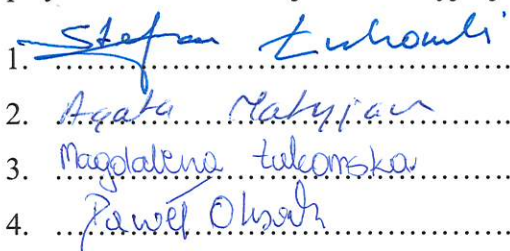 1. Stefan Łukomski
2. Agata Matyjan
3. Magdalena Łukomska
4. Paweł